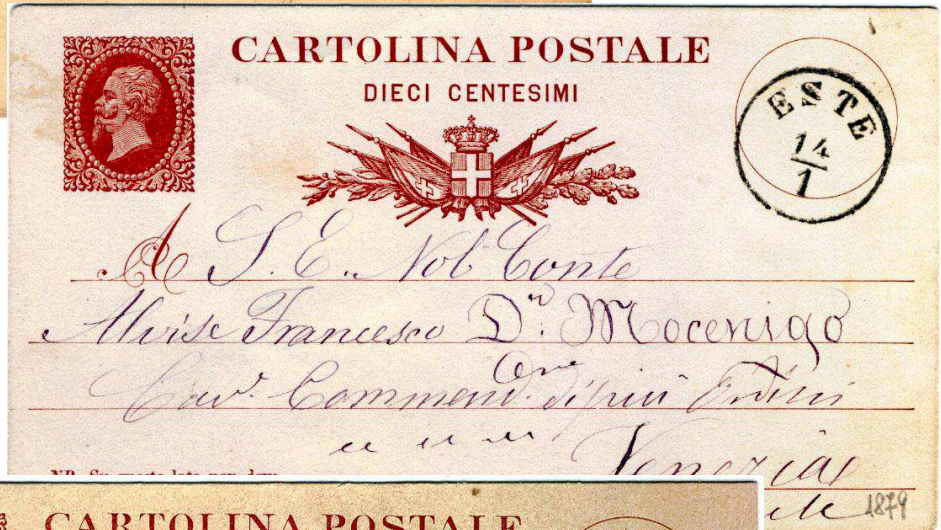 CARTOLINA POSTALE
DIECI CENTESIMI
ESTE
14
1
A S. E. Nob Conte
Alvise Francesco D.r Mocenigo
Cav.r Commend.re di più Ordini
Venezia
1879
NB. Su questo lato non deve
CARTOLINA POSTALE